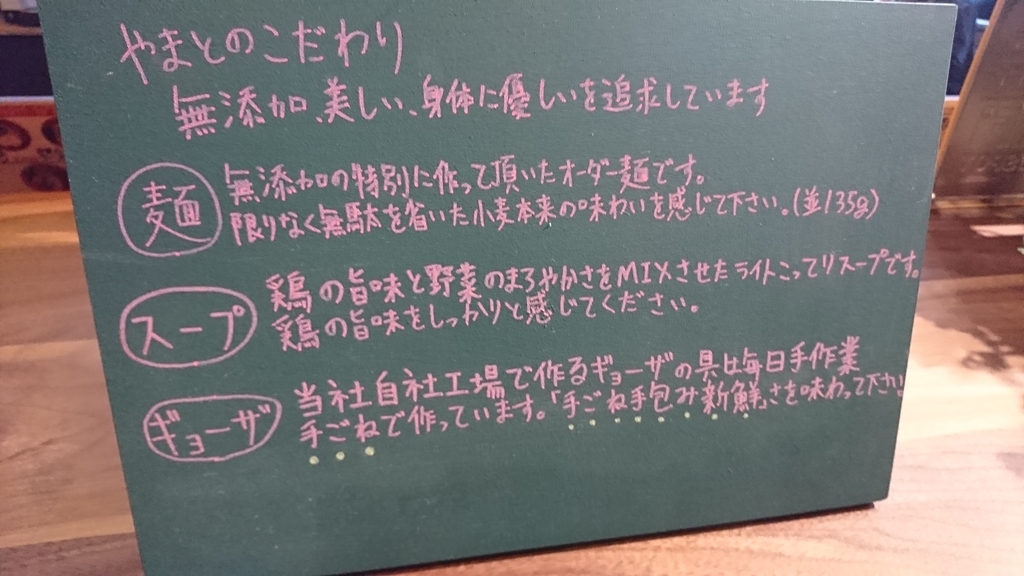 やまとのこだわり
無添加、美しい、身体に優しいを追求しています
麺
無添加の特別に作って頂いたオーダー麺です。
限りなく無駄を省いた小麦本来の味わいを感じて下さい。(並135g)
スープ
鶏の旨味と野菜のまろやかさをMIXさせたライトこってりスープです。
鶏の旨味をしっかりと感じてください。
ギョーザ
当社自社工場で作るギョーザの具は毎日手作業
手ごねで作っています。「手ごね手包み新鮮」さを味わって下さい